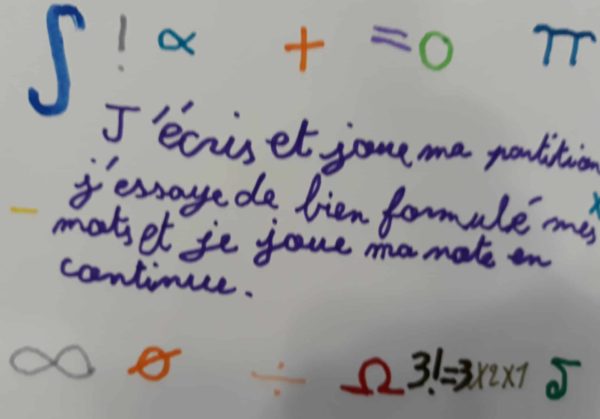 ∫ ! ∝ + = 0 π
J'écris et joue ma partition
j'essaye de bien formulé mes
- mots et je joue ma note en
continue.
∞ ø ÷ Ω 3!=3x2x1 δ